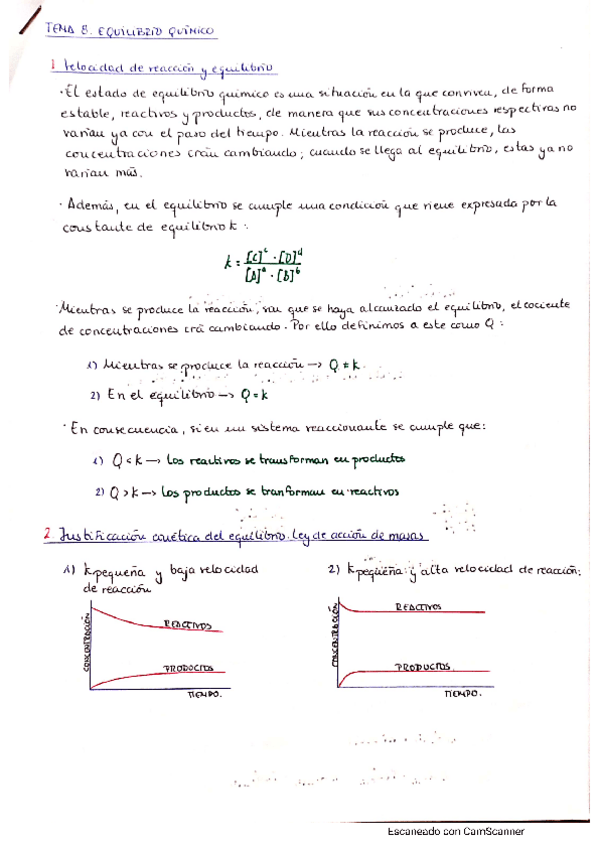 TEMA 8. EQUILIBRIO QUÍMICO
1 Velocidad de reacción y equilibrio
· El estado de equilibrio químico es una situación en la que conviven, de forma
estable, reactivos y productos, de manera que sus concentraciones respectivas no
varían ya con el paso del tiempo. Mientras la reacción se produce, las
concentraciones irán cambiando; cuando se llega al equilibrio, estas ya no
varían más.
· Además, en el equilibrio se cumple una condición que viene expresada por la
constante de equilibrio k:
k = [C]^c · [D]^d / [A]^a · [B]^b
· Mientras se produce la reacción, sin que se haya alcanzado el equilibrio, el cociente
de concentraciones irá cambiando. Por ello definimos a este como Q:
1) Mientras se produce la reacción → Q ≠ k.
2) En el equilibrio → Q = k
· En consecuencia, si en un sistema reaccionante se cumple que:
1) Q < k → Los reactivos se transforman en productos
2) Q > k → Los productos se tranforman en reactivos
2 Justificación cinética del equilibrio. Ley de acción de masas
1) k pequeña y baja velocidad
de reacción
2) k pequeña y alta velocidad de reacción:
CONCENTRACIÓN
REACTIVOS
PRODUCTOS
TIEMPO.
CONCENTRACIÓN
REACTIVOS
PRODUCTOS
TIEMPO.
Escaneado con CamScanner